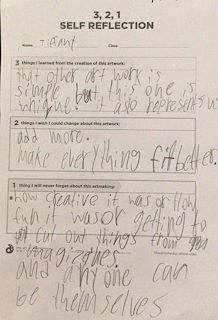 3, 2, 1
SELF REFLECTION
Name Class
3 things I learned from the creation of this artwork:
that other art work is
simple, but this one is
unique. it also represents us
2 things I wish I could change about this artwork:
add more.
make everything fit better.
1 thing I will never forget about this artmaking:
how creative it was or how
fun it was or getting to
cut out things from
magizines.
and anyone can
be themselves